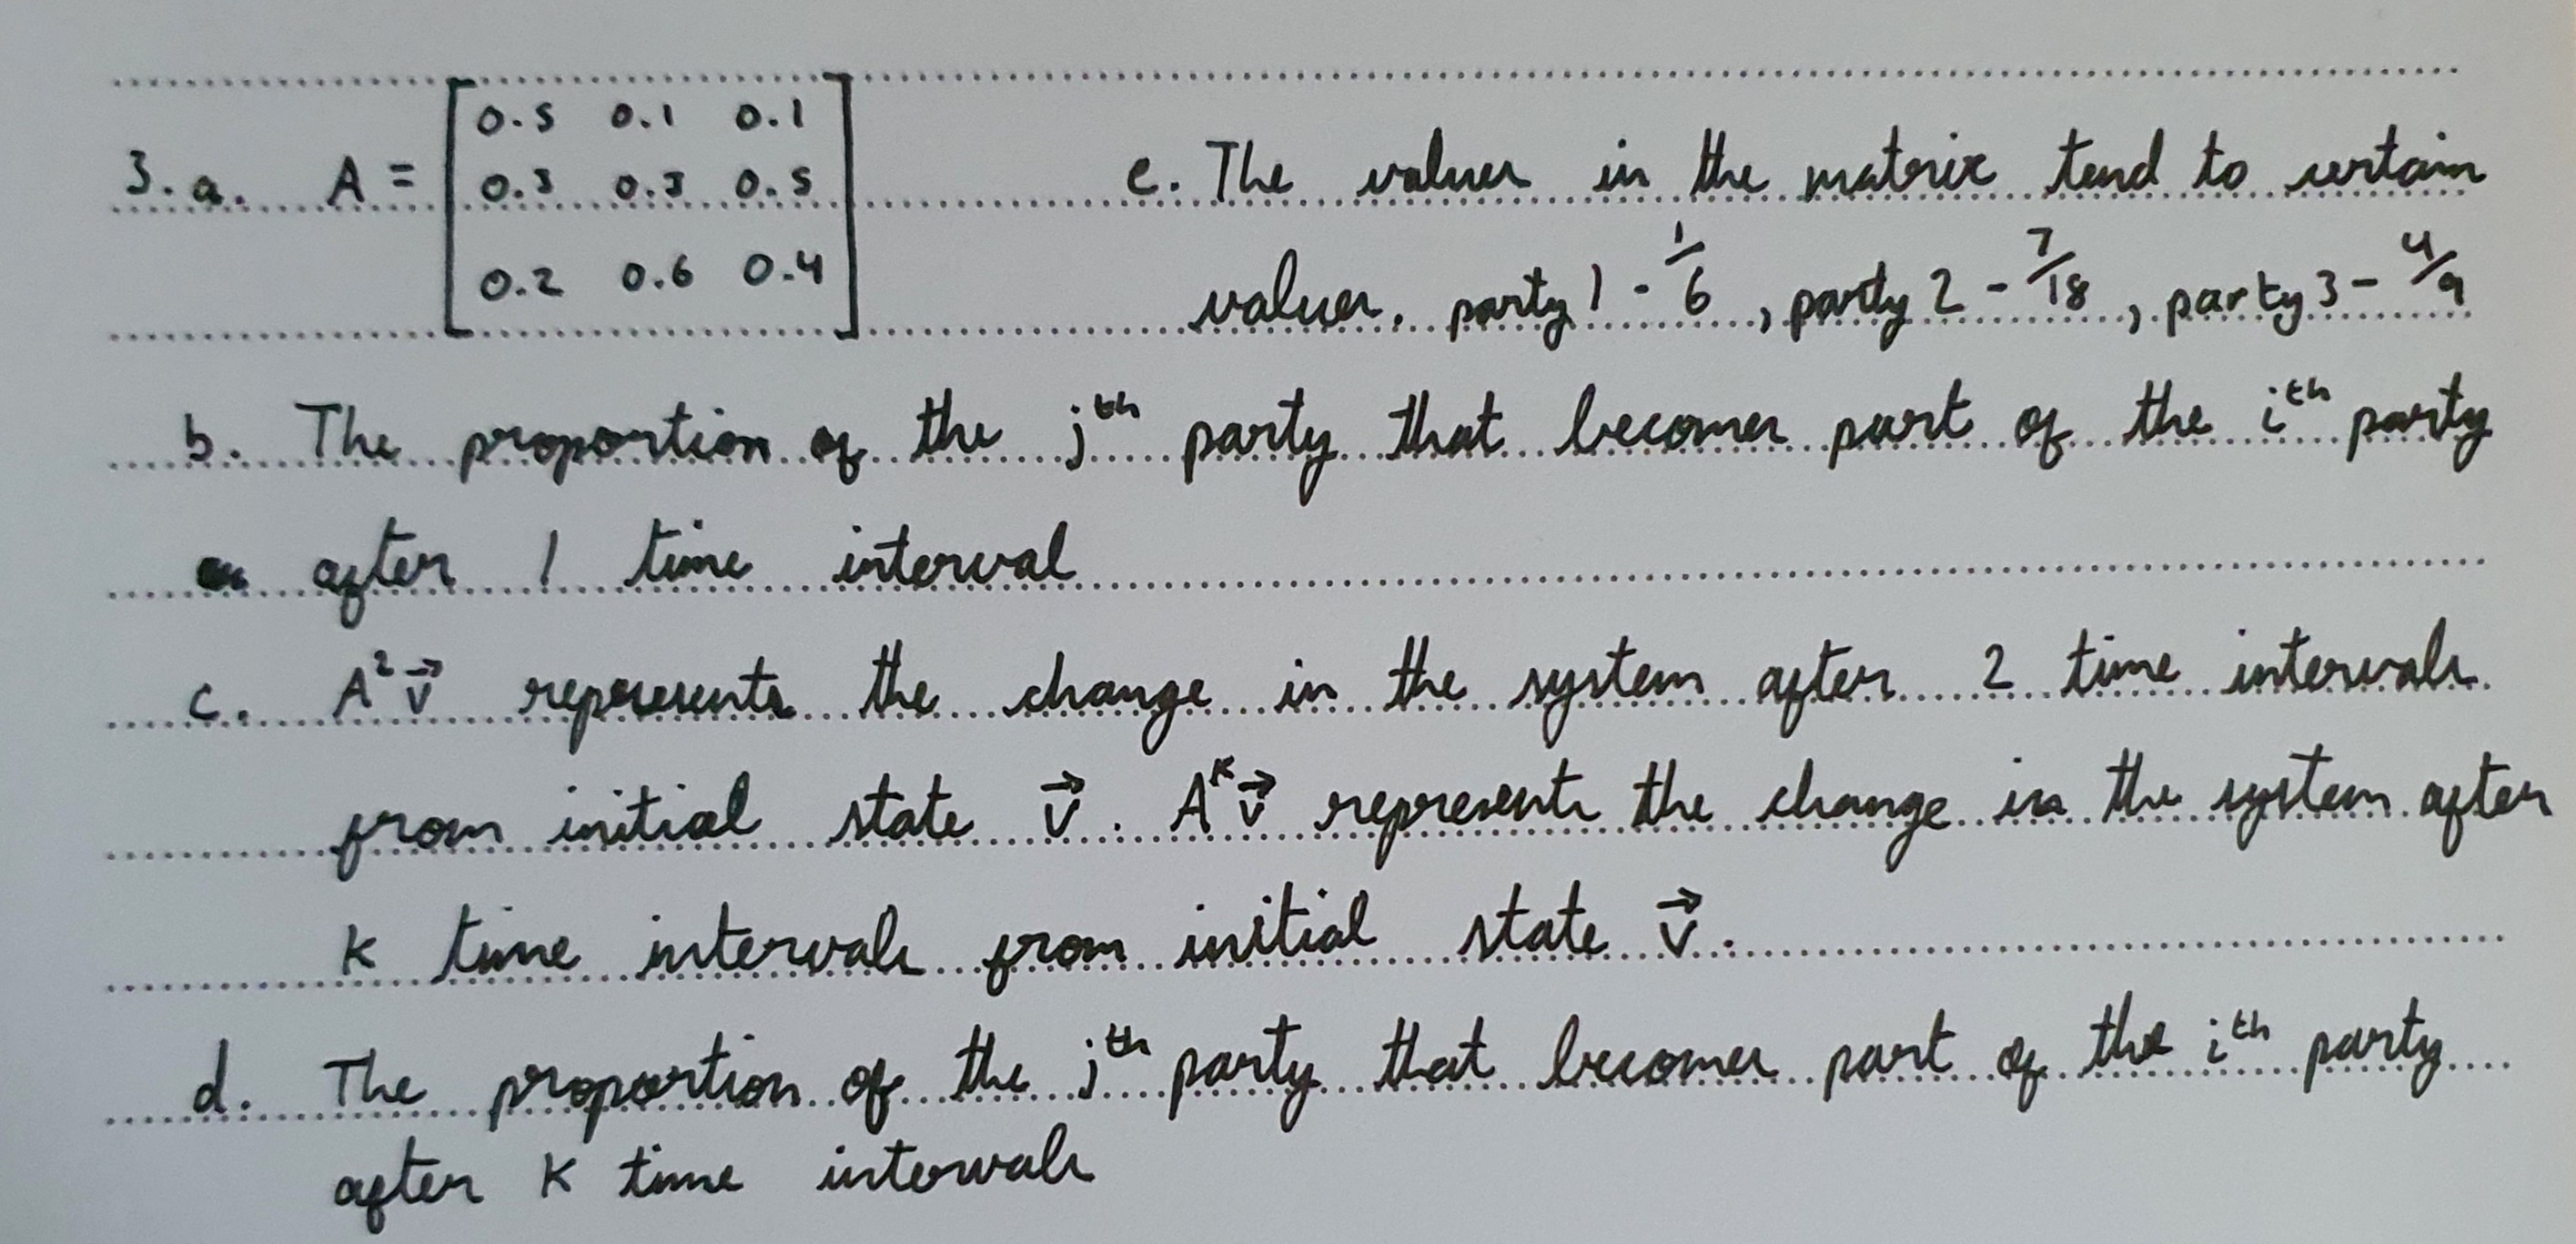 3. a. A = [ 0.5 0.1 0.1
0.3 0.3 0.5
0.2 0.6 0.4 ]
e. The values in the matrix tend to certain
values. party 1 - 1/6, party 2 - 7/18, party 3 - 4/9
b. The proportion of the jth party that becomes part of the ith party
after 1 time interval
c. A² v⃗ represents the change in the system after 2 time intervals
from initial state v⃗. Aᴷ v⃗ represents the change in the system after
K time intervals from initial state v⃗.
d. The proportion of the jth party that becomes part of the ith party
after K time intervals